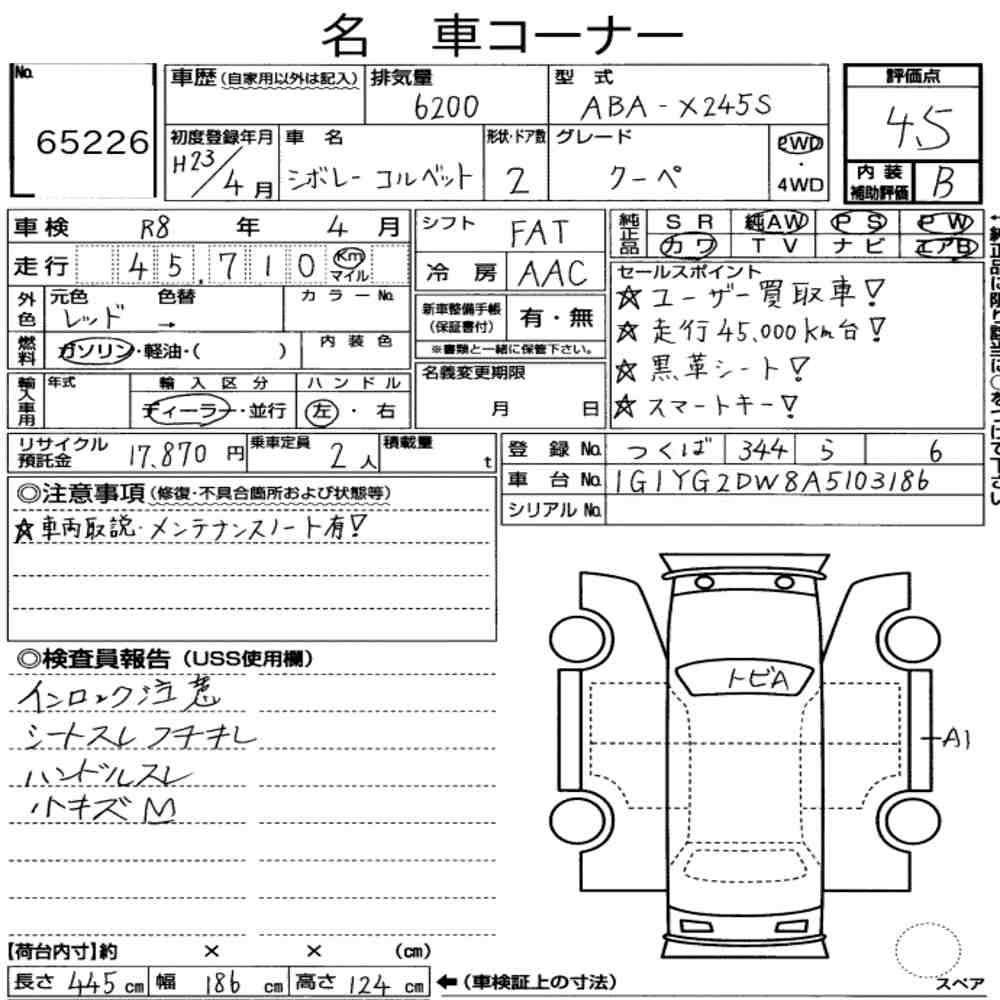 名 車コーナー
No.
65226
車歴 (自家用以外は記入)
排気量
6200
型式
ABA-X245S
評価点
4.5
初度登録年月
H23/4月
車名
シボレー コルベット
形状・ドア数
2
グレード
クーペ
2WD
・
4WD
内装
補助評価
B
車検 R8 年 4 月
走行 45,710 Km マイル
外色
元色
レッド
色替
→
カラーNo.
燃料
ガソリン・軽油・( )
内装色
輸入車用
年式
輸入区分
ディーラー・並行
ハンドル
左・右
シフト FAT
冷房 AAC
新車整備手帳
(保証書付)
有・無
※書類と一緒に保管下さい。
名義変更期限
月 日
純正品
SR 純AW PS PW
カワ TV ナビ エアB
←純正品に限り該当に○をつけて下さい
セールスポイント
☆ユーザー買取車!
☆走行45,000km台!
☆黒革シート!
☆スマートキー!
リサイクル
預託金
17,870 円
乗車定員
2 人
積載量
t
登録No. つくば 344 ら 6
車台No. 1G1YG2DW8A5103186
シリアルNo.
◎注意事項 (修復・不具合箇所および状態等)
☆車両取説・メンテナンスノート有!
◎検査員報告 (USS使用欄)
インロック注意
シートスレ フチキレ
ハンドルスレ
小キズM
トビA
A1
スペア
【荷台内寸】約 × × (cm)
長さ 445 cm 幅 186 cm 高さ 124 cm ←(車検証上の寸法)